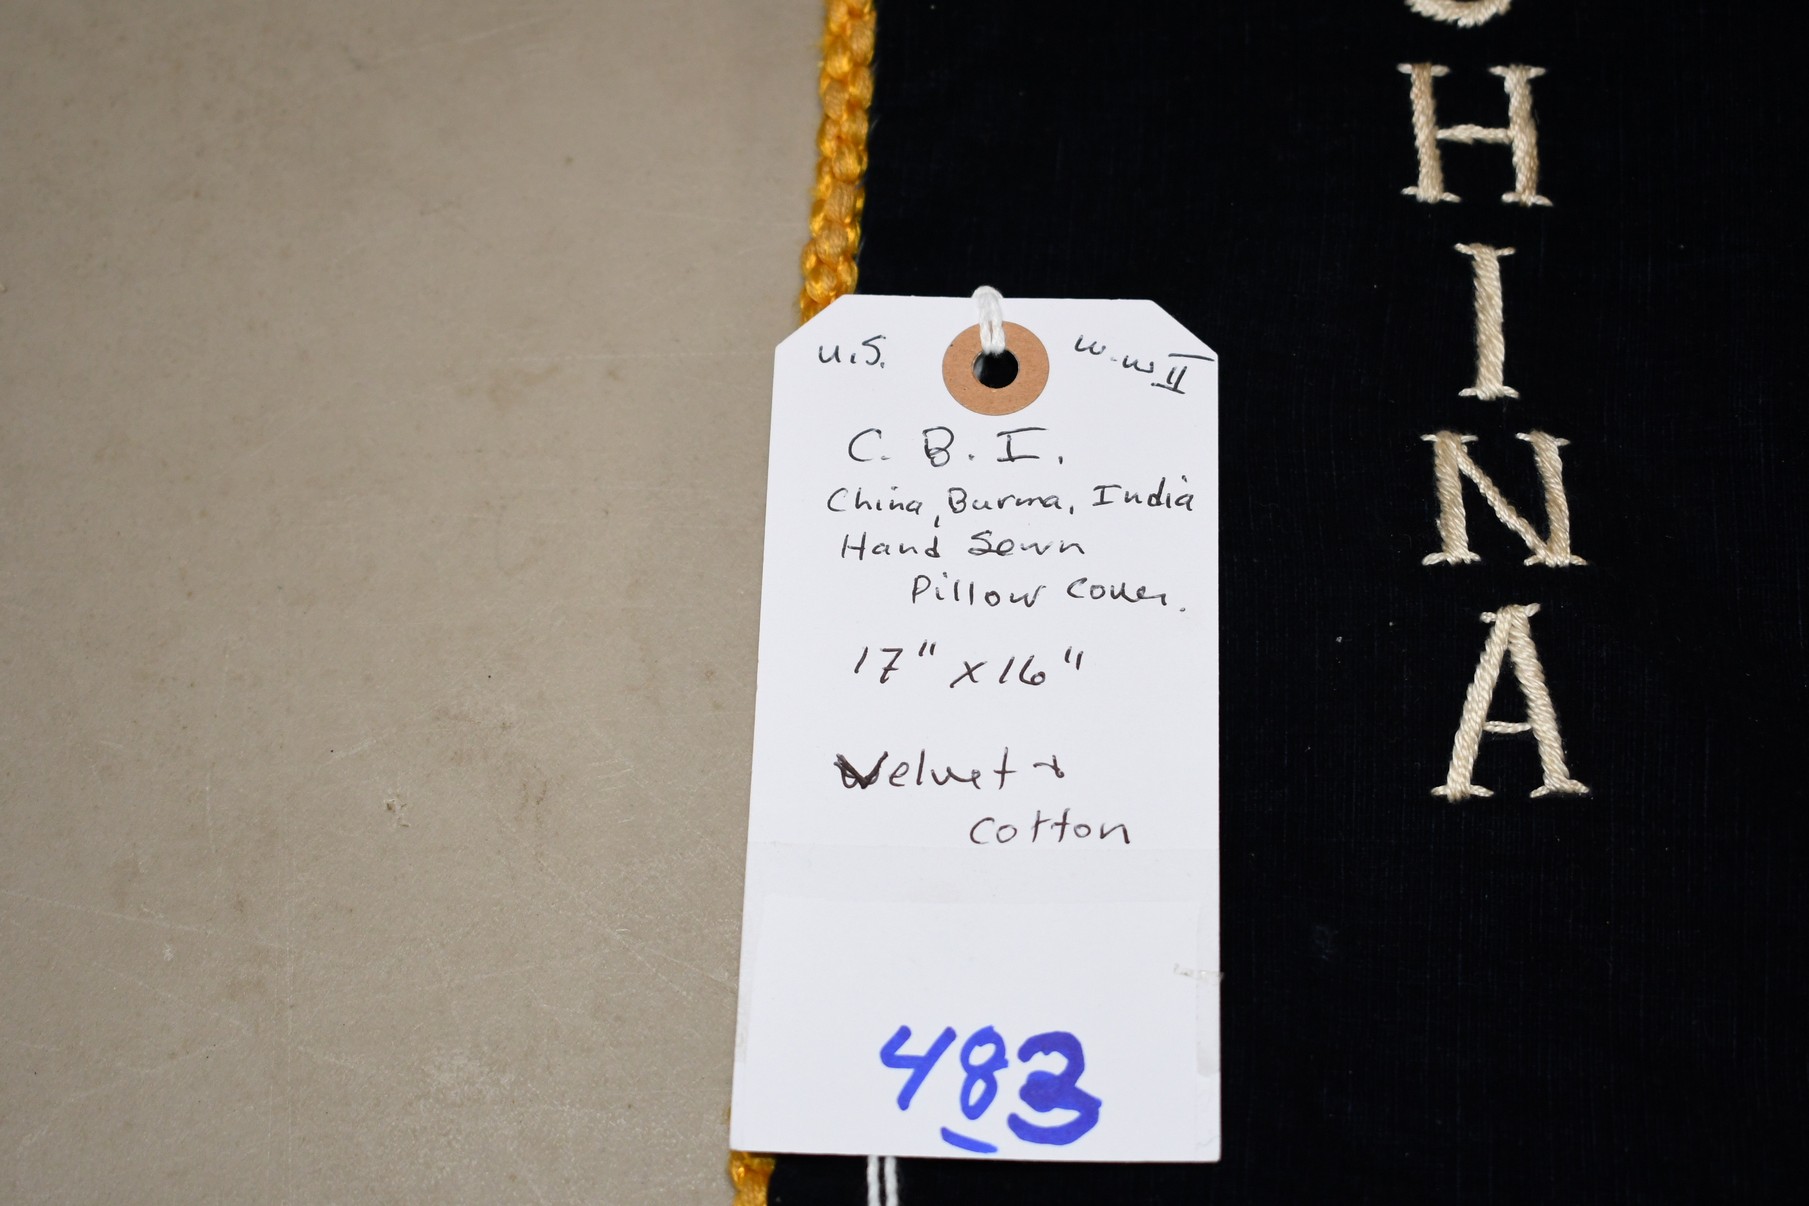 U.S. W.W II
C. B. I.
China, Burma, India
Hand Sewn
Pillow Cover.
17" x 16"
Velvet &
Cotton
483
C
H
I
N
A